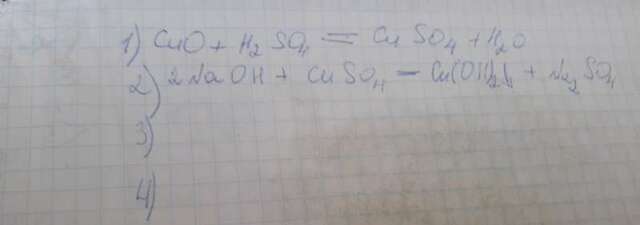 1) CuO + H₂SO₄ = CuSO₄ + H₂O
2) 2NaOH + CuSO₄ = Cu(OH)₂↓ + Na₂SO₄
3)
4)